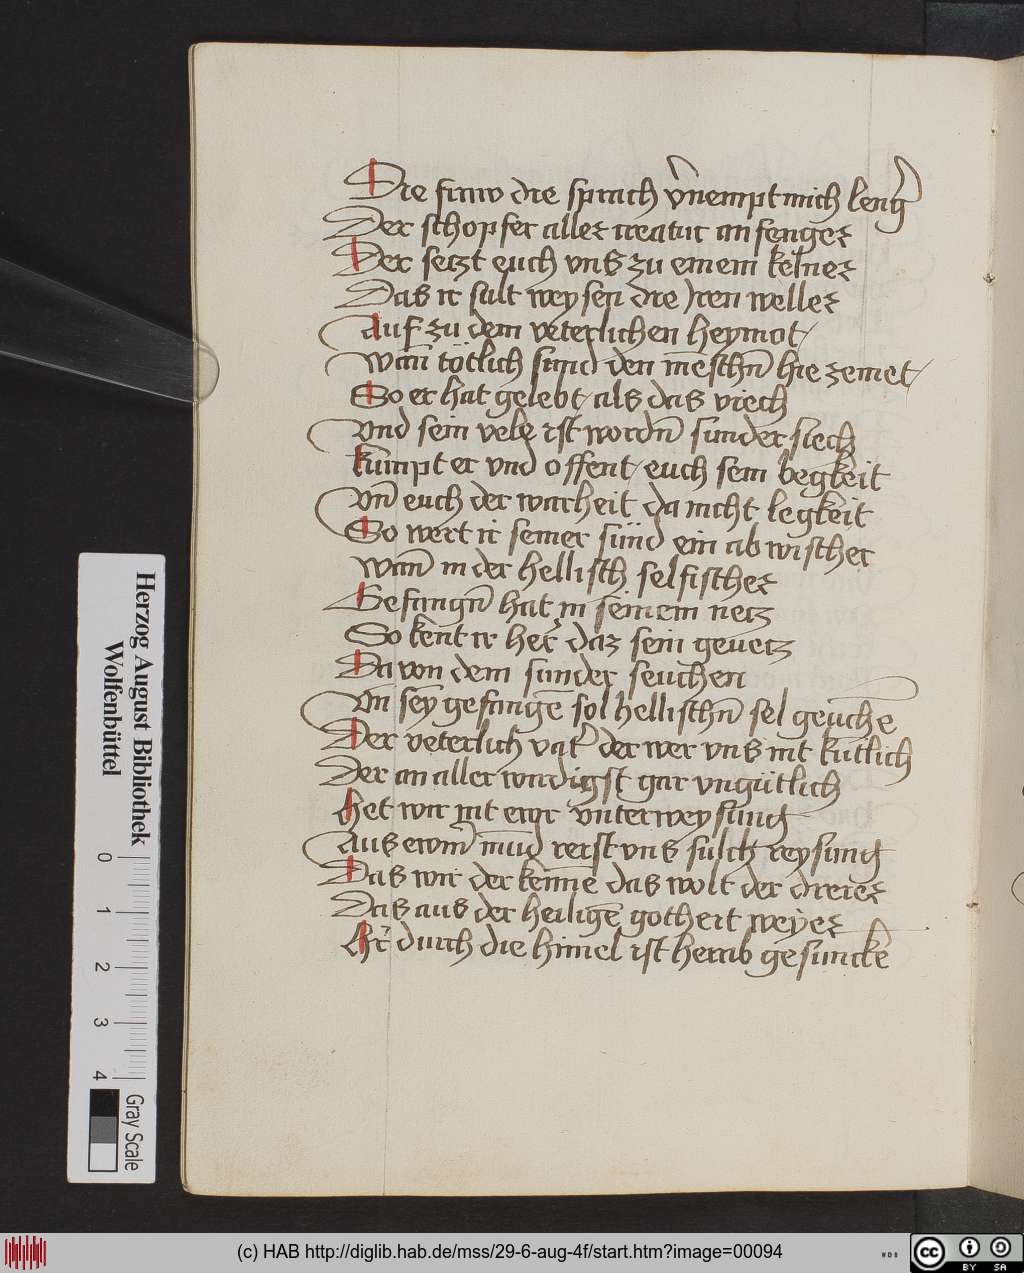 Die fraw die sprach v̉nempt mich leng̉
Der schopfer aller creatur anfenger
Der seczt euch vns zu einem kelner
Das ir sült weysen die jren weller
Auf zu dem veterlichen heymot
wañ tötlich sund den mēschñ hie zemet
So er hat gelebt als das viech
vnd sein vele ist wordñ sunder siech
kumpt er vnd offent euch sein begkeit
vñ euch der warheit da nicht legkeit
So wert ir seiner sünd ein abwischer
wañ in der hellisch selfischer
Gefangñ hat jn seinem netz
So kent ir her daz sein gevecz
Da von dem sunder seuchen
Vn sein gefangē sol hellischñ sel geuchē
Der veterlich vat̉ der wer vns nit kutlich
Der an aller wirdigst gar vngütlich
Het wir nit ewr vnterweysung
Aus ewm̄ mūd rerst vns sulch reysung
Das wir der kennē das wolt der dreier
Das aus der heiligē gotheit weyer
Er durch die himel ist herab gesunckē
Herzog August Bibliothek
Wolfenbüttel
0 1 2 3 4
Gray Scale
(c) HAB http://diglib.hab.de/mss/29-6-aug-4f/start.htm?image=00094
WDB
cc BY SA